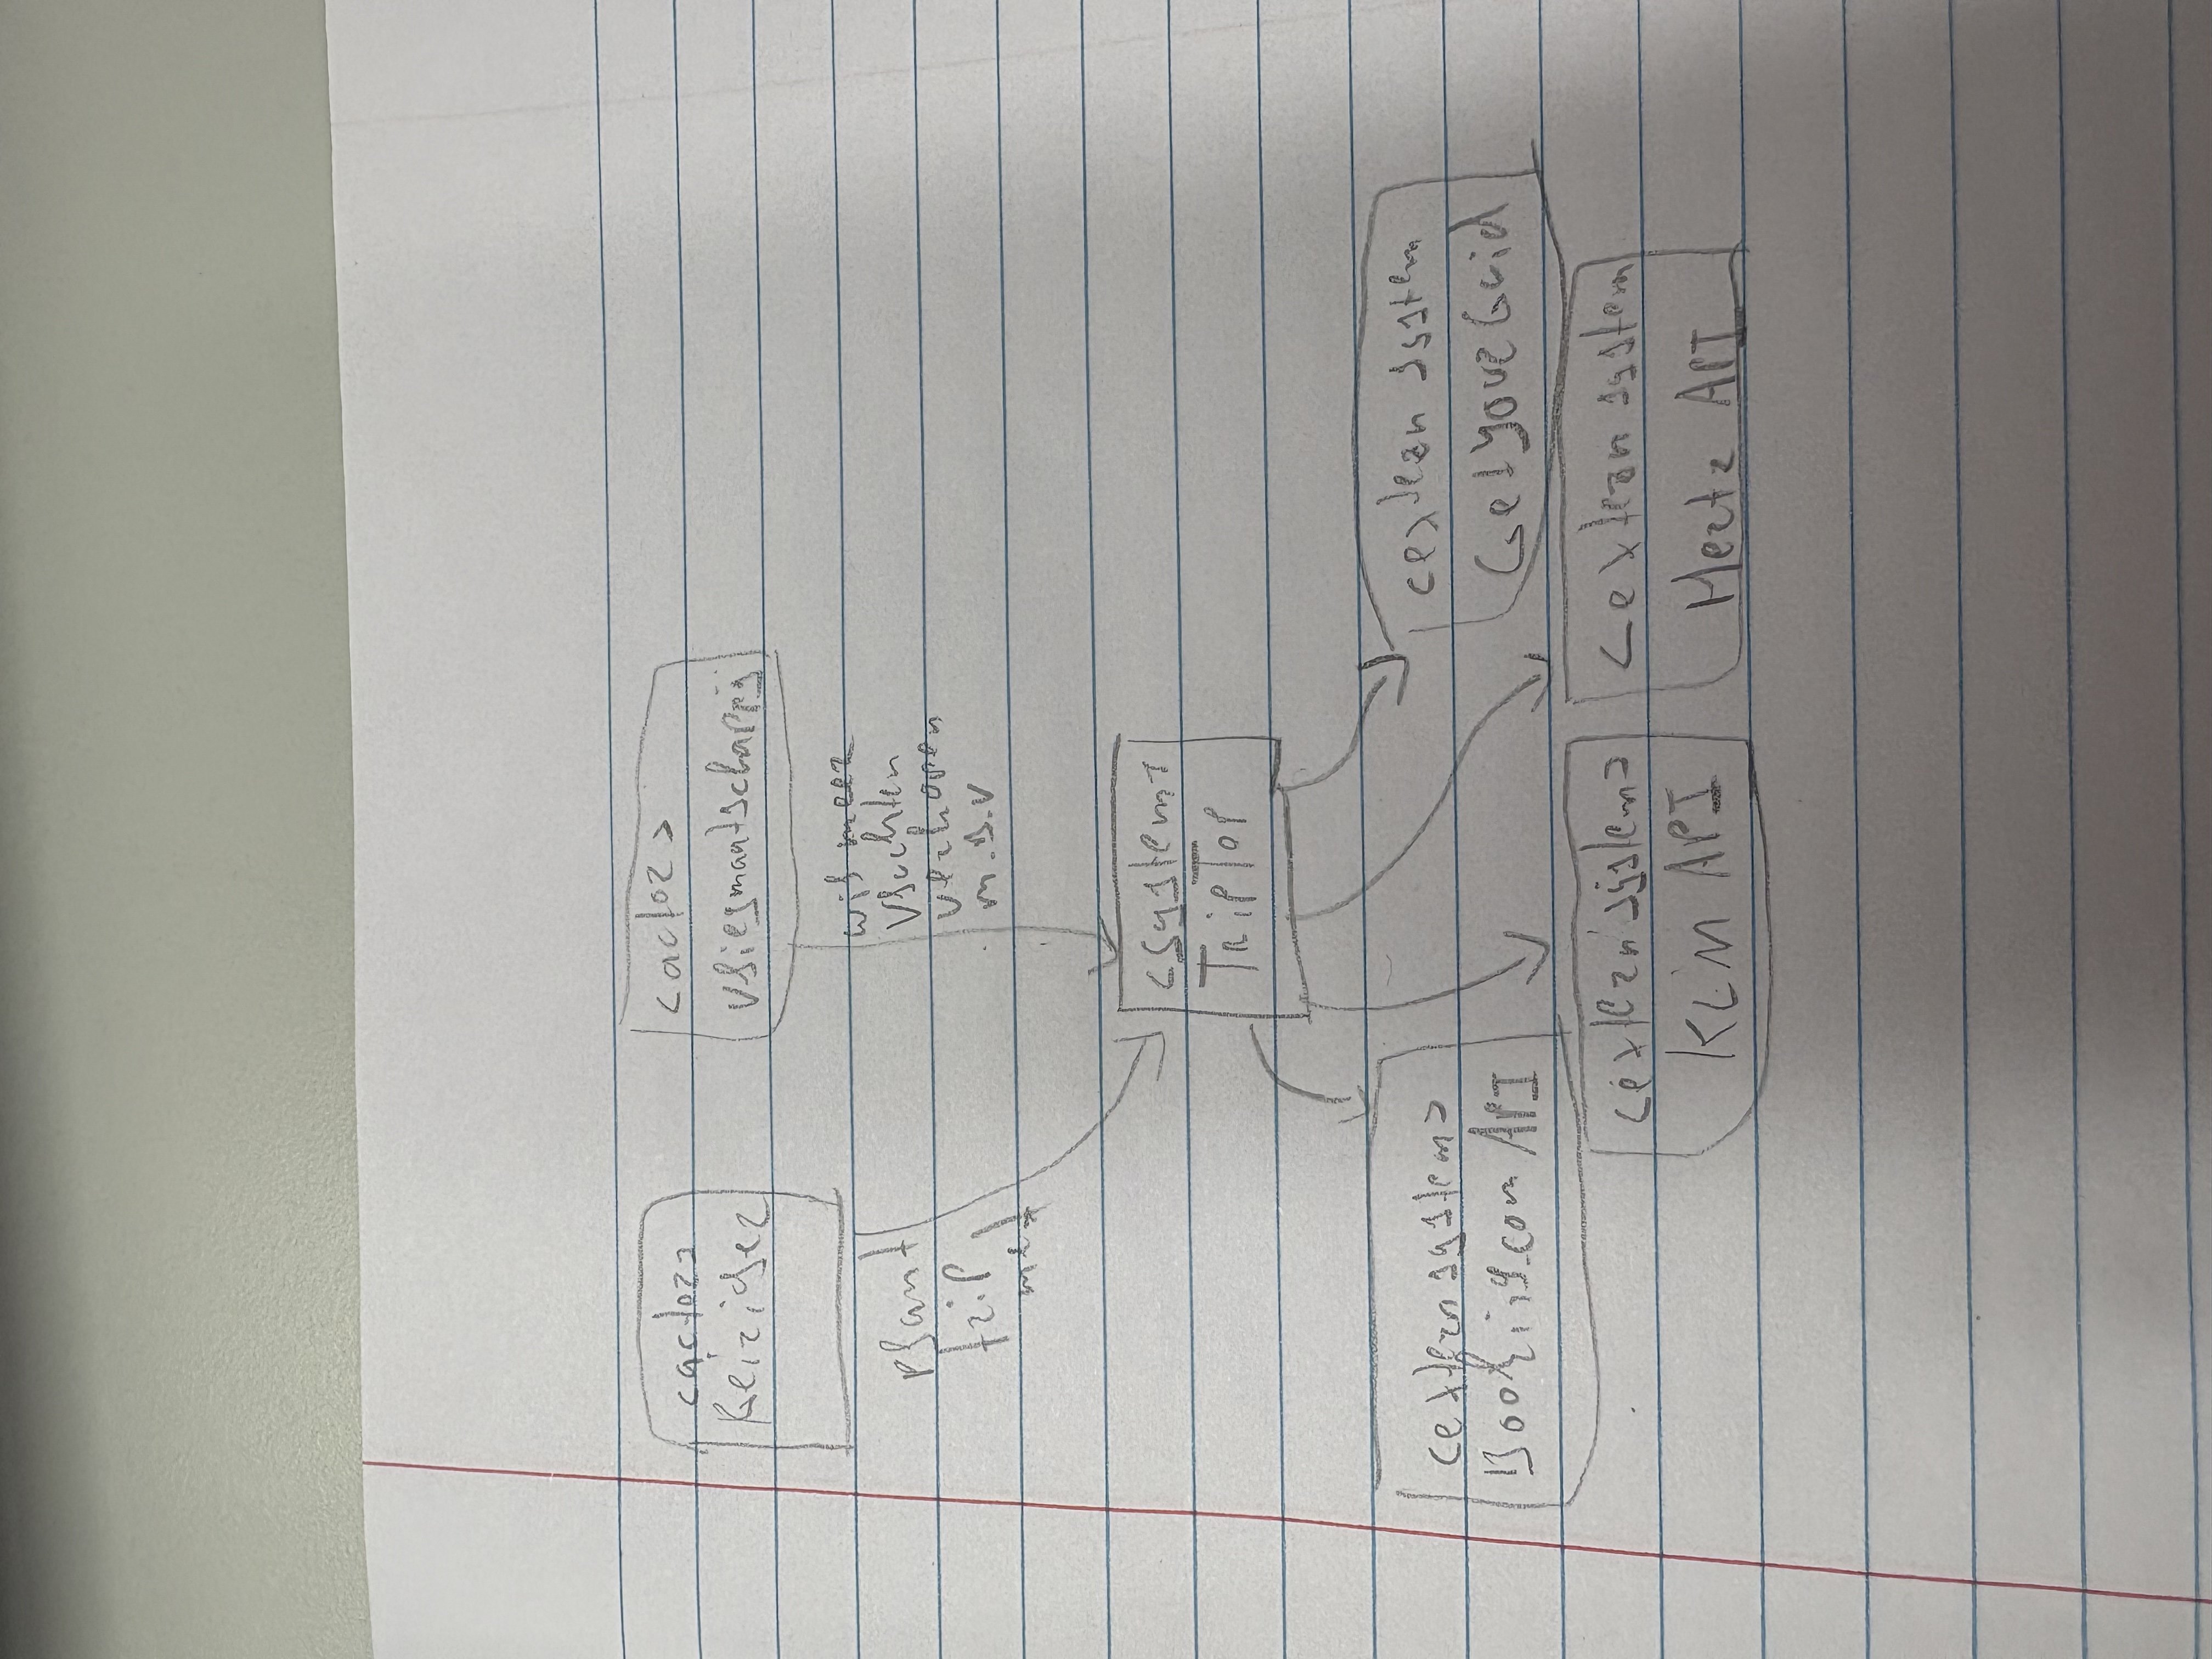 <actor>
Reiziger
<actor>
Vliegmaatschappij
plant
trip
met
wil meer
vluchten
verkopen
m.b.v
<system>
TripTop
<extern system>
Booking.com API
<extern system
GetYourGuid
<extern system>
KLM API
<extern system
Hertz API